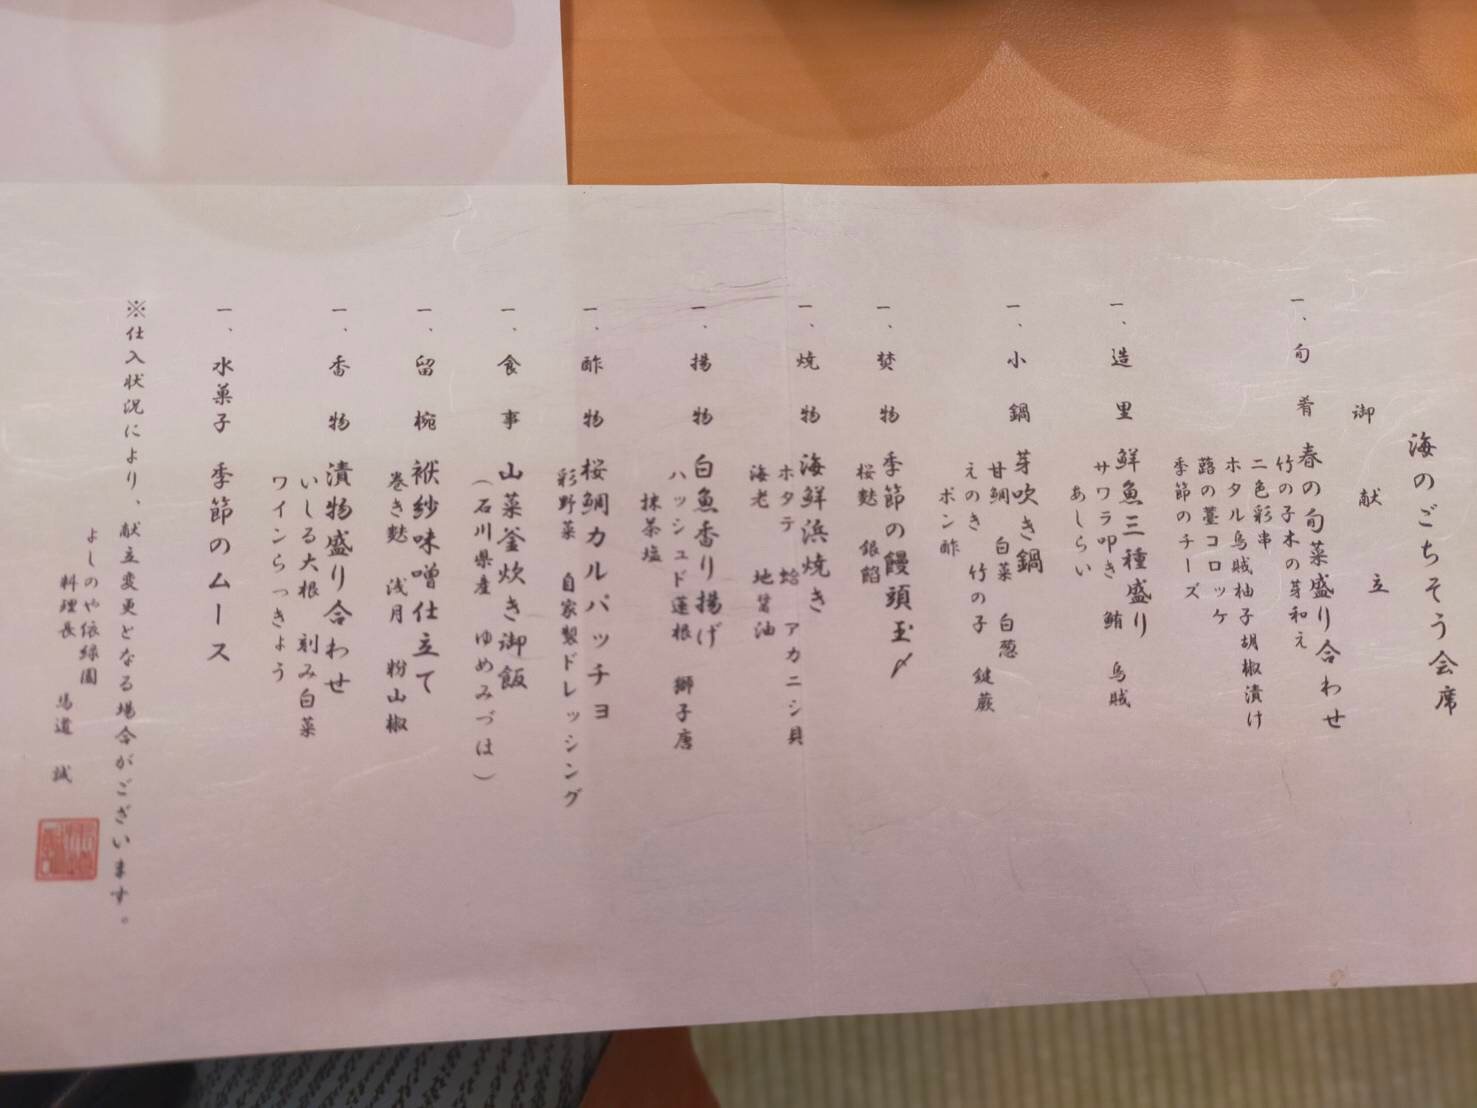 海のごちそう会席
御献立
一、旬肴 春の旬菜盛り合わせ
竹の子木の芽和え
二色彩串
ホタル烏賊柚子胡椒漬け
蕗の薹コロッケ
季節のチーズ
一、造里 鮮魚三種盛り
サワラ叩き 鮪 烏賊
あしらい
一、小鍋 芽吹き鍋
甘鯛 白菜 白葱
えのき 竹の子 鍵蕨
ポン酢
一、焚物 季節の饅頭玉〆
桜麩 銀餡
一、焼物 海鮮浜焼き
ホタテ 蛤 アカニシ貝
海老 地醤油
一、揚物 白魚香り揚げ
ハッシュド蓮根 獅子唐
抹茶塩
一、酢物 桜鯛カルパッチョ
彩野菜 自家製ドレッシング
一、食事 山菜釜炊き御飯
（石川県産 ゆめみづほ）
一、留椀 袱紗味噌仕立て
巻き麩 浅月 粉山椒
一、香物 漬物盛り合わせ
いしる大根 刻み白菜
ワインらっきょう
一、水菓子 季節のムース
※仕入状況により、献立変更となる場合がございます。
よしのや依緑園
料理長 馬道 誠